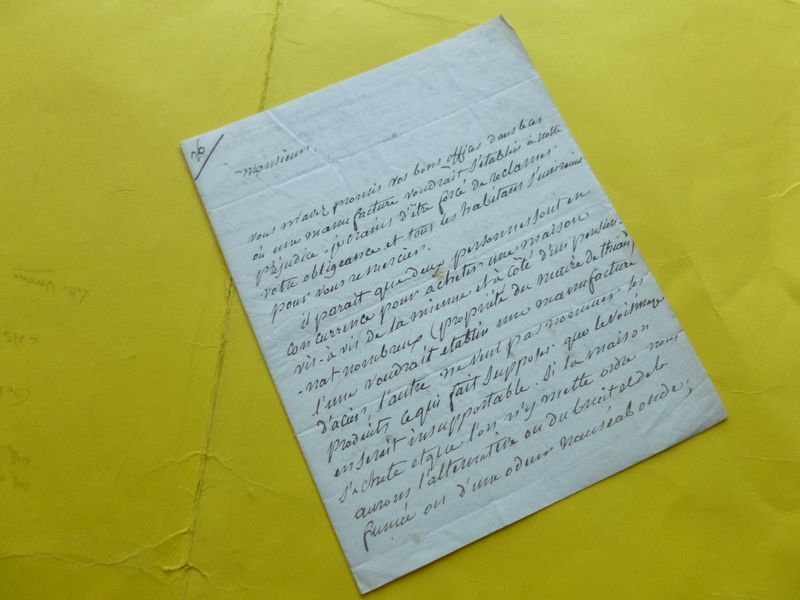 monsieur.
vous m'avez promis vos bons offices dans le cas
où une manufacture voudrait s'établir à notre
préjudice. je crains d'être forcé de reclamer
votre obligeance et tous les habitans s'uniraient
pour vous remercier.
il parait que deux personnes sont en
concurrence pour acheter une maison
vis-à-vis de la mienne et à côté d'un pension-
-nat nombreux (propriété du maire de thiais)
l'une voudrait etablir une manufacture
d'acier, l'autre ne veut pas nommer les
produits ce qui fait supposer que le voisinage
en serait insupportable. Si la maison
s'achete et que l'on n'y mette ordre nous
aurons l'alternative ou du bruit et de la
fumée ou d'une odeur nauséabonde,